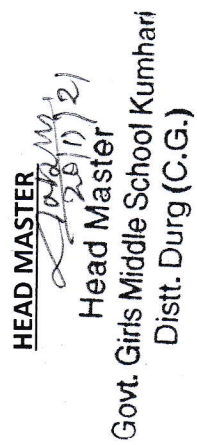 HEAD MASTER
20/11/21
Head Master
Govt. Girls Middle School Kumhari
Distt. Durg (C.G.)